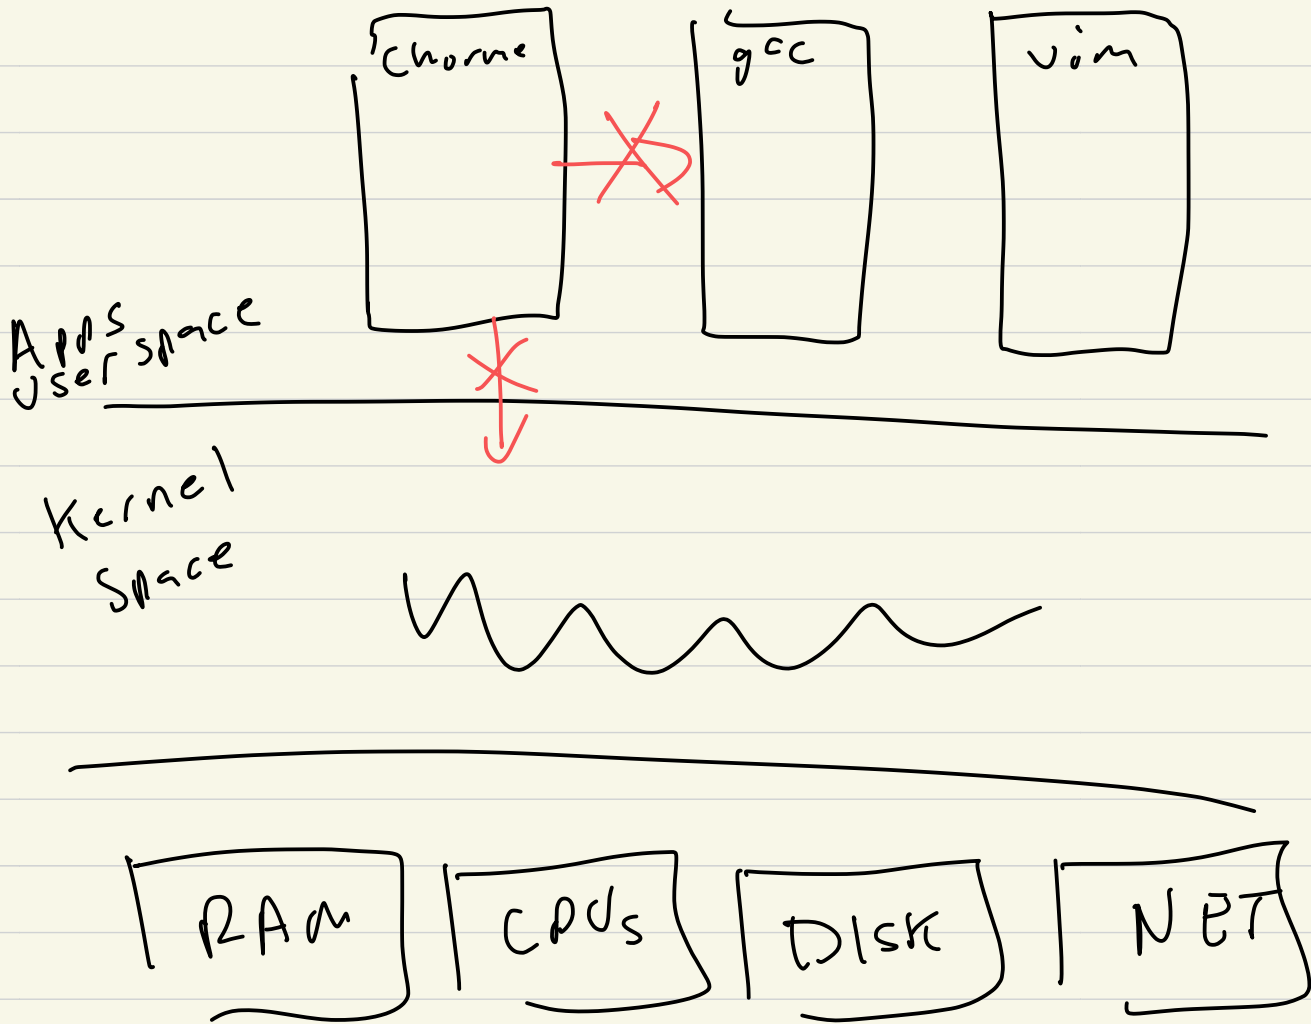 Chorme
gcc
vim
Apps
User space
Kernel
Space
RAM
CPUs
DISK
NET